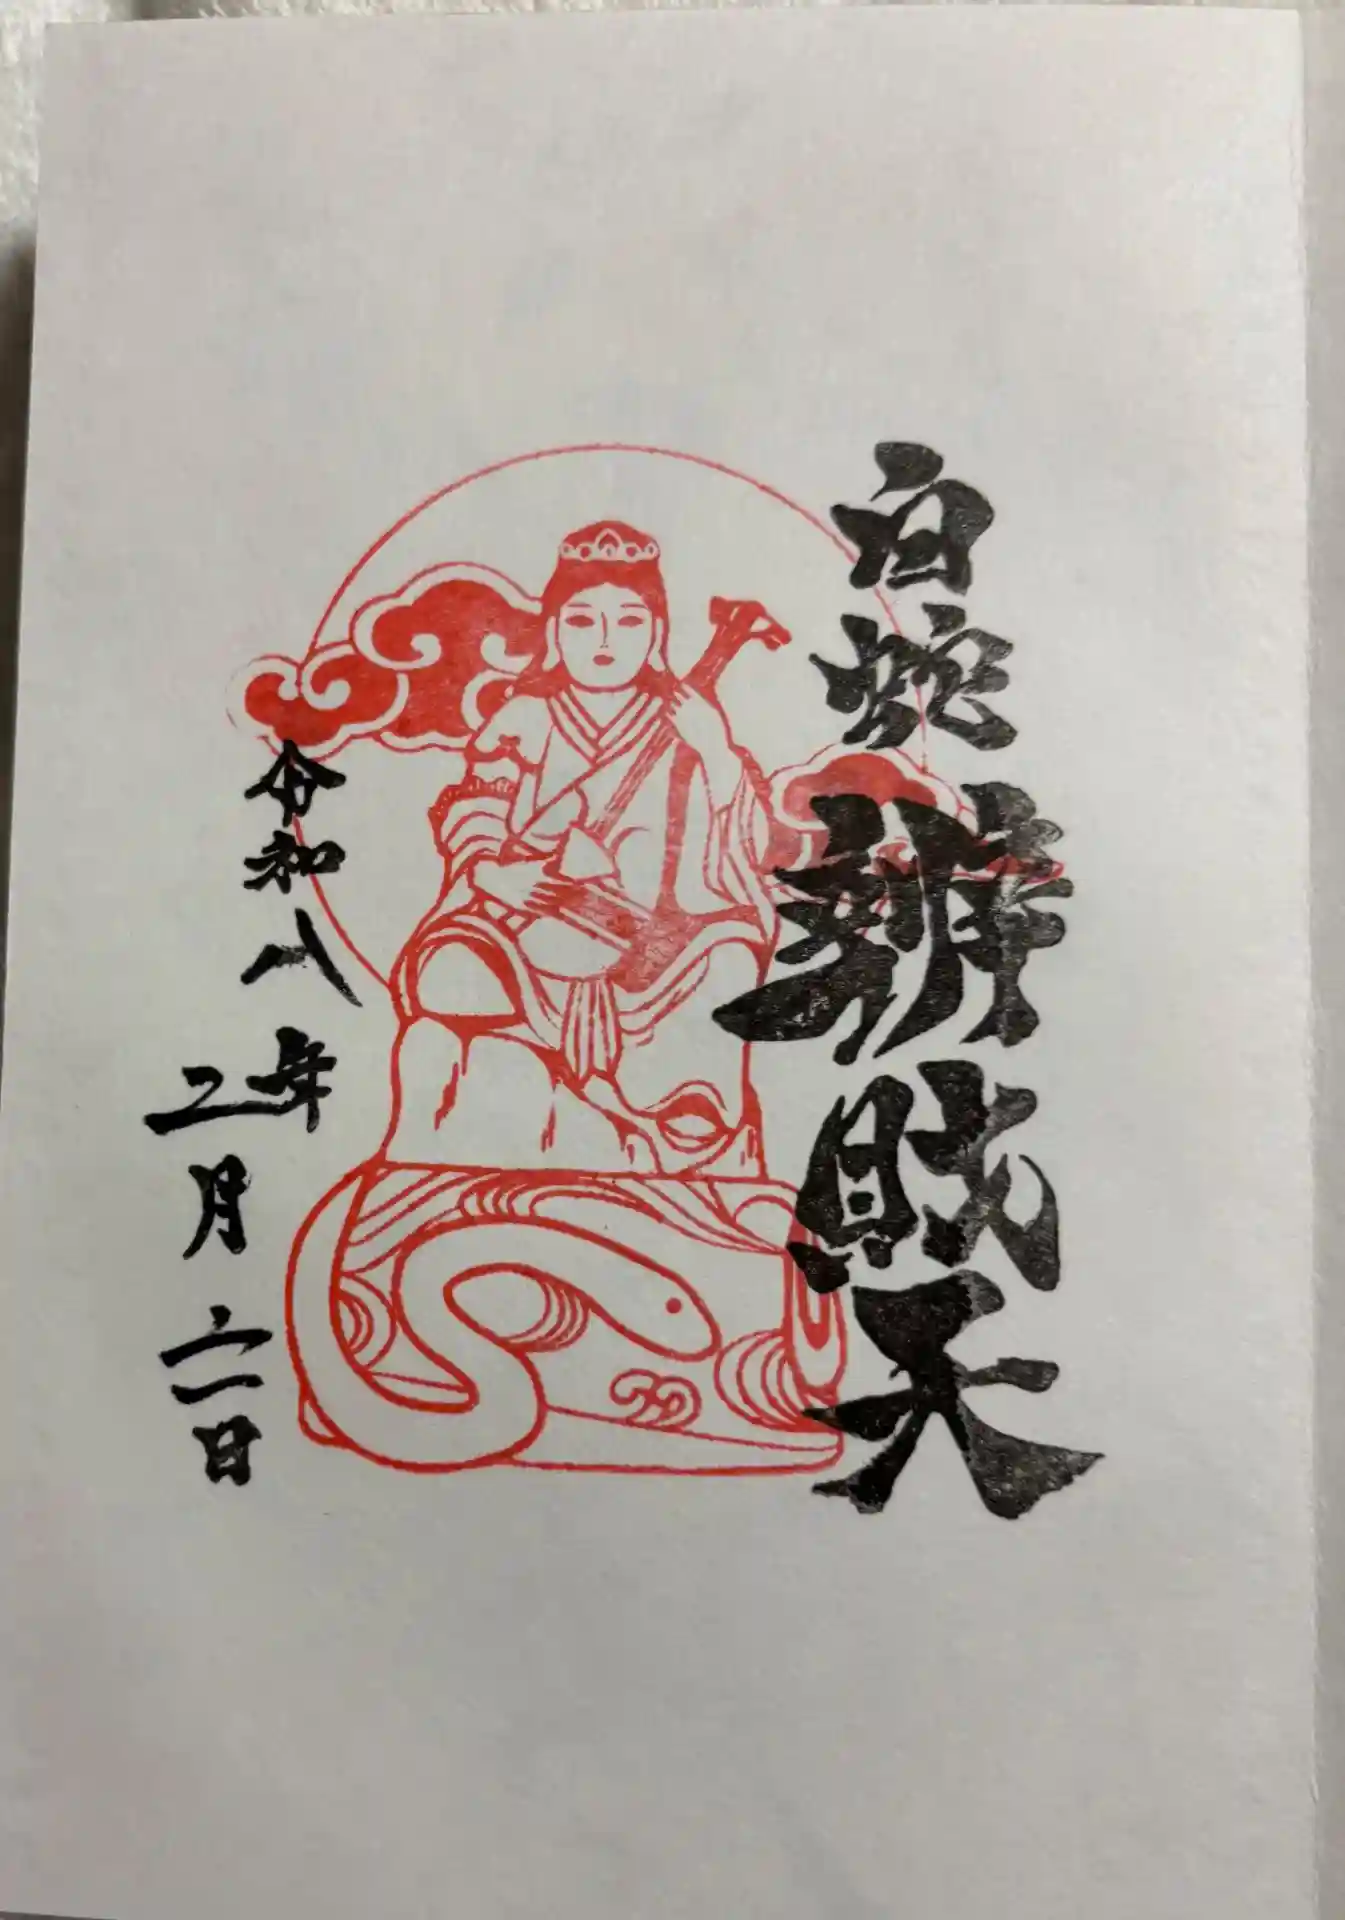 白蛇辨財天
令和八年
二月二一日